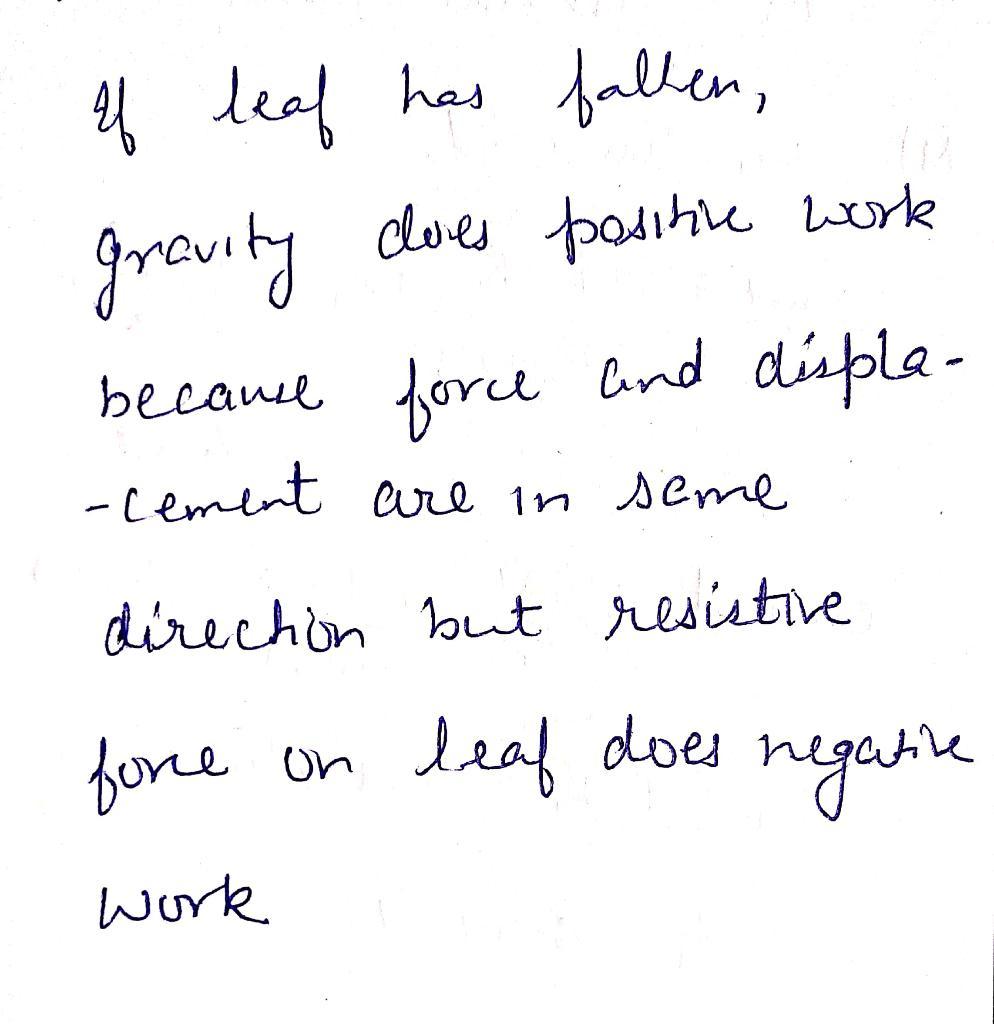 If leaf has fallen,
gravity does positive work
because force and displa-
-cement are in same
direction but resistive
force on leaf does negative
work